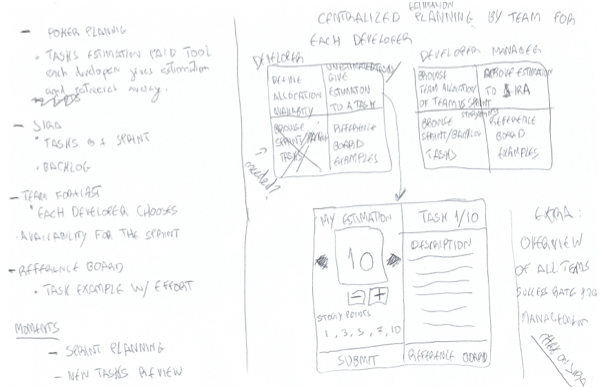 - POKER PLANNING
• TASKS ESTIMATION PAID TOOL
each developer gives estimation
and retrieves average.
- JIRA
• TASKS SPRINT
• BACKLOG
- TEAM FORECAST
• EACH DEVELOPER CHOOSES
AVAILABILITY FOR THE SPRINT
- REFERENCE BOARD
• TASK EXAMPLE W/ EFFORT
MOMENTS
- SPRINT PLANNING
- NEW TASKS REVIEW
ESTIMATION
CENTRALIZED PLANNING BY TEAM FOR
EACH DEVELOPER
DEVELOPER
DEFINE
ALLOCATION
GIVE
ESTIMATION
TO A TASK
BROWSE
SPRINT/
TASKS
REFERENCE
BOARD
EXAMPLES
needed?
DEVELOPER MANAGER
BROWSE
TEAM ALLOCATION
OF TEAM IN SPRINT
APPROVE ESTIMATION
TO JIRA
BROWSE STORYPOINTS
SPRINT/BACKLOG
TASKS
REFERENCE
BOARD
EXAMPLES
MY ESTIMATION
10
- +
STORY POINTS
1, 3, 5, 7, 10
SUBMIT
TASK 1/10
DESCRIPTION
REFERENCE BOARD
EXTRA:
OVERVIEW
OF ALL TEAMS
SUCCESS RATE FOR
MANAGEMENT